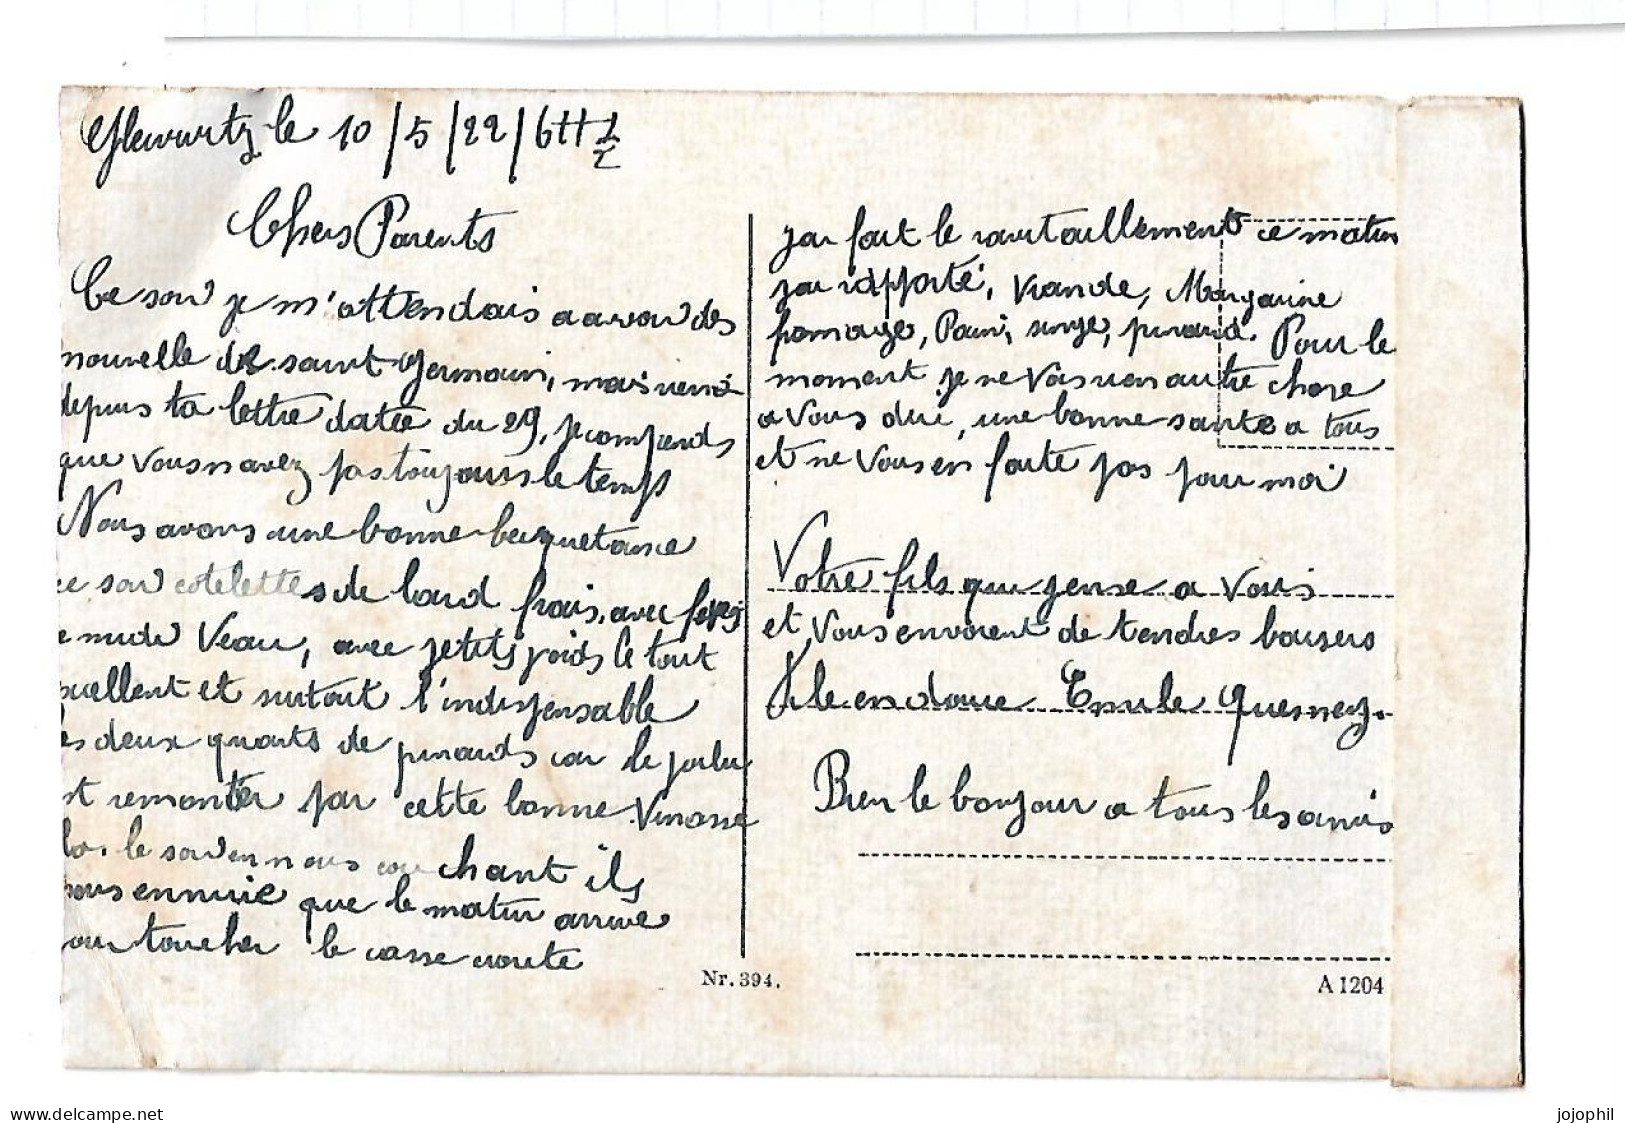 le 10/5/22/6H 1/2
Chers Parents
Ce soir je m'attendais a avoir des
nouvelle de saint Germain, mais rien
depuis ta lettre datée du 29, je comprends
que vous n avez pas toujours le temps
Nous avons une bonne becquetance
ce soir cotelettes de lard frais, avec
Veau, avec petits poids le tout
excellent et surtout l'indispensable
les deux quarts de pinards car le poilu
est remonter par cette bonne Vinasse
le soir en nous couchant ils
nous ennuie que le matin arrive
pour toucher le casse croute
jai fait le ravitaillement ce matin
jai rapporté, Viande, Margarine
fromage, Pain, singe, pinard. Pour le
moment je ne Vois rien autre chose
a Vous dire, une bonne sante a tous
et ne Vous en faite pas pour moi
Votre fils qui pense a Vous
et Vous envoient de tendres baisers
Emile Quesney.
Bien le bonjour a tous les amis
Nr. 394.
A 1204
www.delcampe.net
jojophil